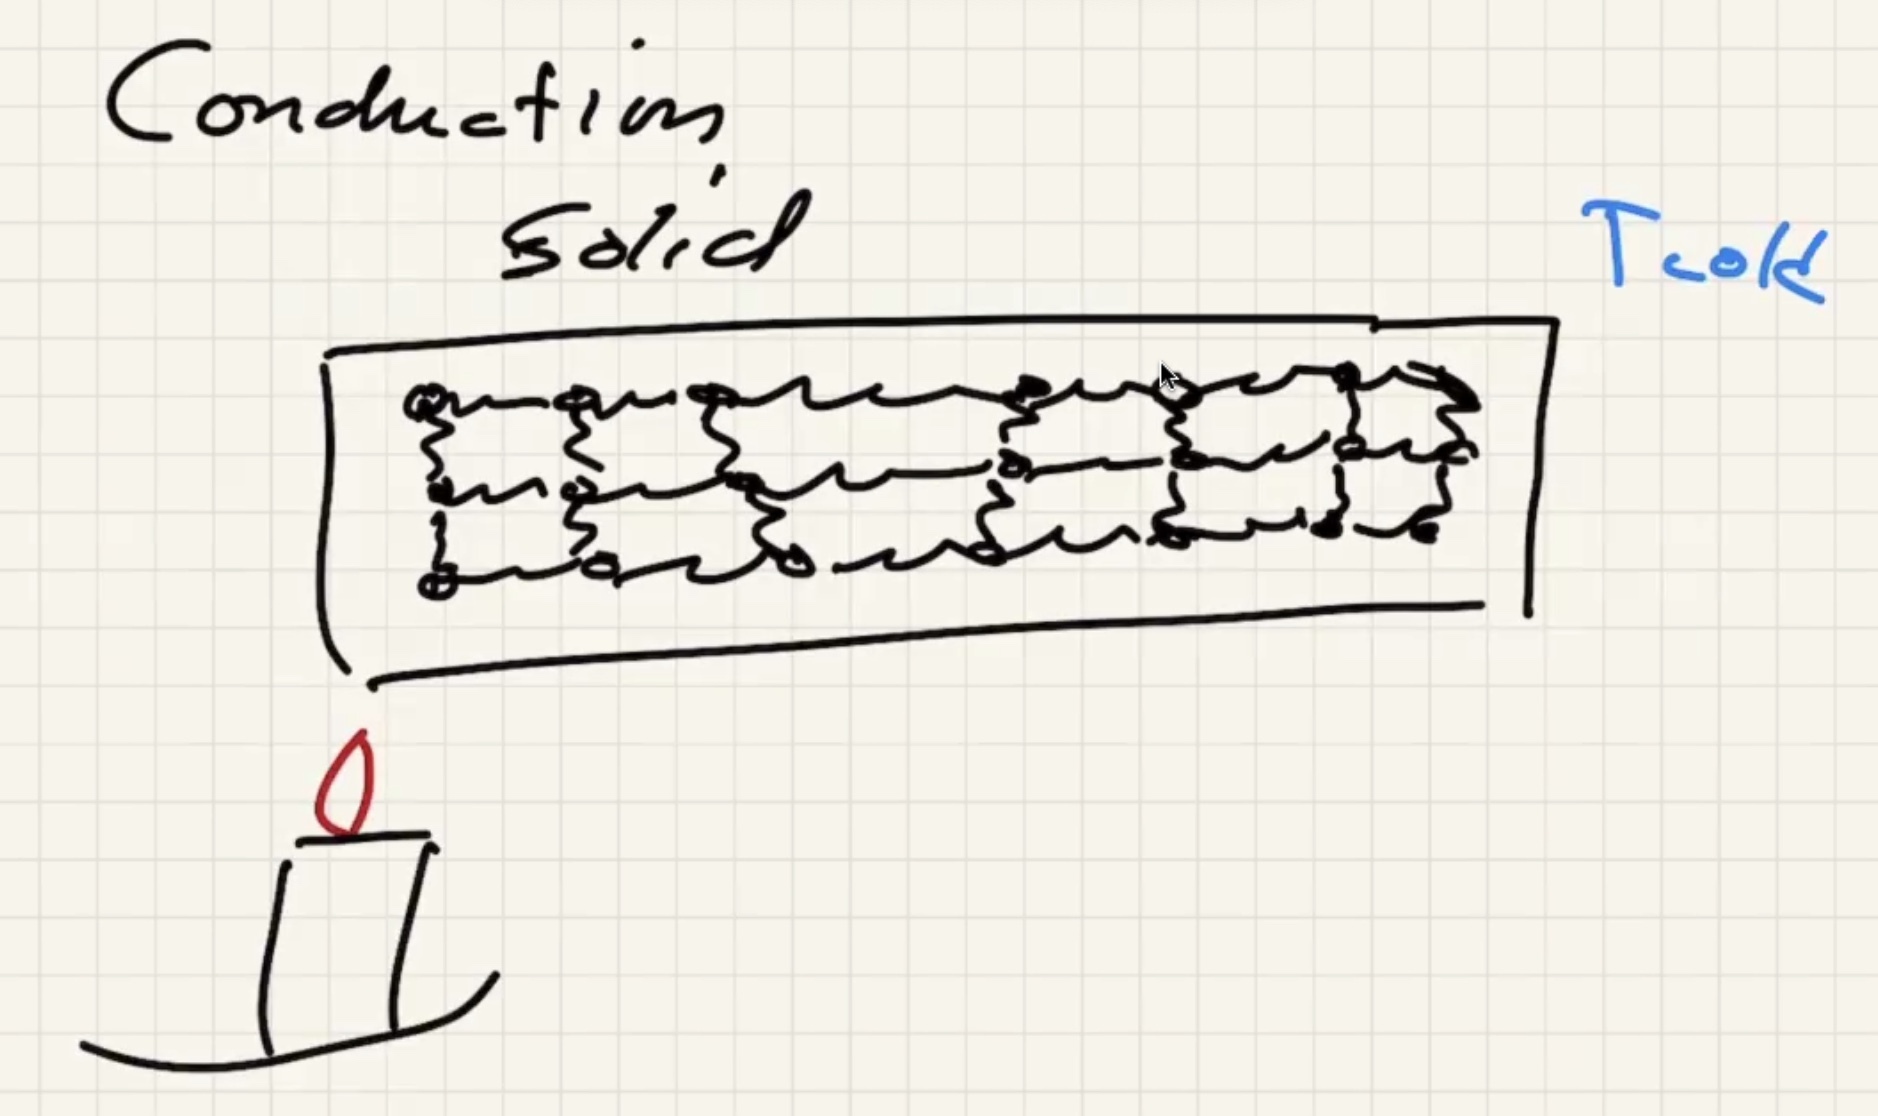 Conduction
Solid
Tcold